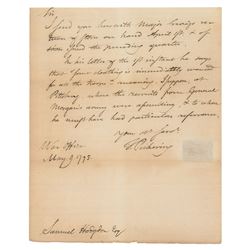 Sir,
I send you herewith Major Craigs re-
turn of Stores on hand April 1st & of
those issued the preceding quarter.
In his letter of the 1st instant he says
that "four clothing is immediately wanted
for all the troops
Pittsburg where the recruits from General
Morgan's army were assembling, & to whom
he must have had particular reference.
Your ob. Serv.
T. Pickering
War Office
May 9. 1795.
Samuel Hodgdon Esq